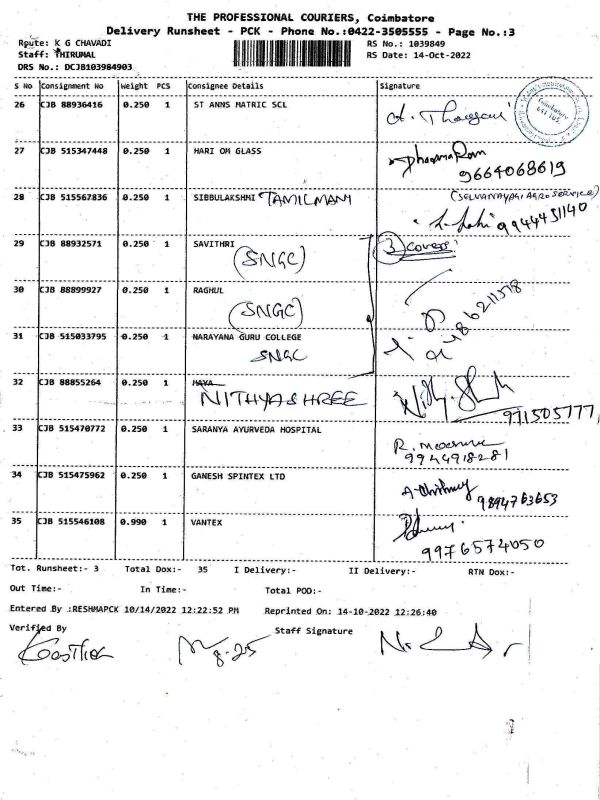 THE PROFESSIONAL COURIERS, Coimbatore
Delivery Runsheet - PCK - Phone No.:0422-3505555 - Page No.:3
Route: K G CHAVADI RS No.: 1039849
Staff: THIRUMAL RS Date: 14-Oct-2022
DRS No.: DCJB103984903
S No Consignment No Weight PCS Consignee Details Signature
26 CJB 88936416 0.250 1 ST ANNS MATRIC SCL
Coimbatore
641 105
27 CJB 515347448 0.250 1 HARI OM GLASS DharmaRam
9664068619
28 CJB 515567836 0.250 1 SIBBULAKSHMI TAMILMANI (SELVANAYAGI AGRO SERVICE)
9944451140
29 CJB 88932571 0.250 1 SAVITHRI 3 covers
(SNGC)
30 CJB 88899927 0.250 1 RAGHUL
(SNGC)
31 CJB 515033795 0.250 1 NARAYANA GURU COLLEGE
SNGC
32 CJB 88855264 0.250 1 MAYA
NITHYASHREE
971505777
33 CJB 515470772 0.250 1 SARANYA AYURVEDA HOSPITAL
9944918281
34 CJB 515475962 0.250 1 GANESH SPINTEX LTD
9894763653
35 CJB 515546108 0.990 1 VANTEX
9976574050
Tot. Runsheet:- 3 Total Dox:- 35 I Delivery:- II Delivery:- RTN Dox:-
Out Time:- In Time:- Total POD:-
Entered By :RESHMAPCK 10/14/2022 12:22:52 PM Reprinted On: 14-10-2022 12:26:40
Verified By Staff Signature